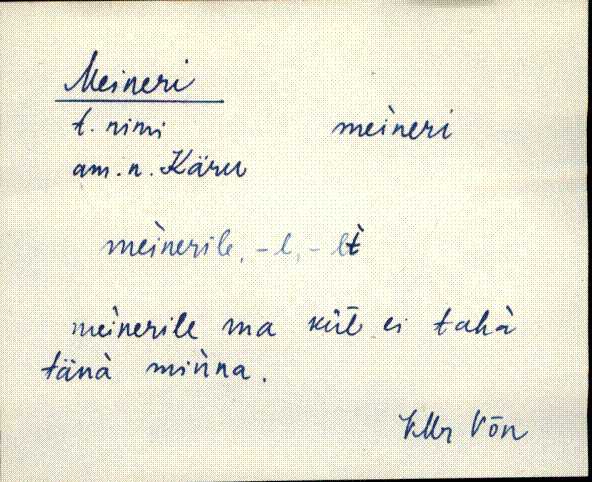 Meineri
t. nimi meìneri
am. n. Käru
meìnerile, -l, -lt̀
meìnerile ma kül̄ ei tahà
tänà miǹna.
KMr Võn